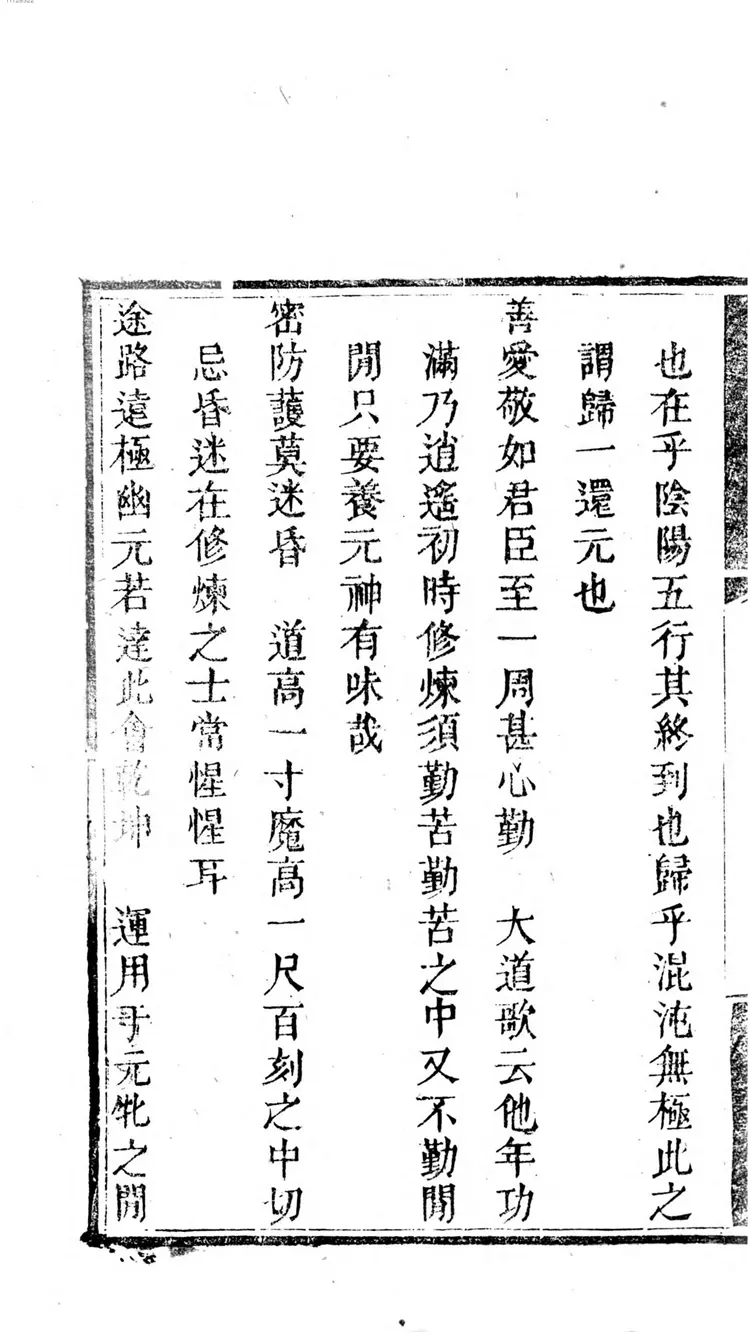 也在乎陰陽五行其終到也歸乎混沌無極此之
謂歸一還元也
善愛敬如君臣至一周甚心勤　大道歌云他年功
滿乃逍遙初時修煉須勤苦勤苦之中又不勤閒
閒只要養元神有味哉
密防護莫迷昏　道高一寸魔高一尺百刻之中切
忌昏迷在修煉之士常惺惺耳
途路遠極幽元若達此會乾坤　運用于元牝之閒